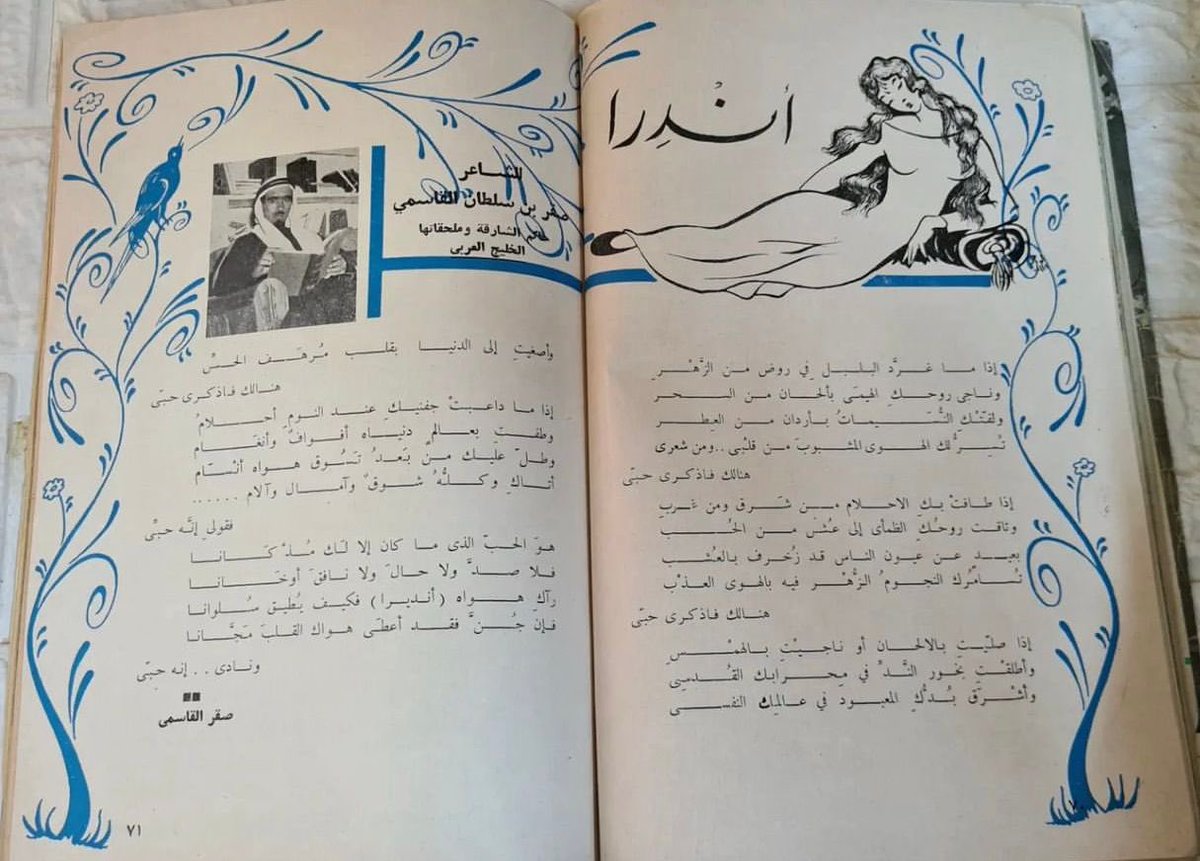 أنْدِرا
إذا ما غرَّد البلبل في روض من الزَّهْرِ
وناجى روحكِ الهيمَى بألحان من السحر
ولفَتْك النُّسَيماتُ بأردان من العطر
تُسِرُّ لك الهوى المشبوبَ من قلبي .. ومن شعرى
هنالك فاذكرى حبّى
إذا طافتْ بك الاحلام من شَرق ومن غربِ
وتاقت روحُك الظمأى إلى عُشّ من الحُبّ
بعيد عن عيون الناس قد زُخرف بالعُشب
تُسامرُك النجومُ الزُّهْر فيه بالهوى العذْب
هنالك فاذكرى حبّى
إذا صلّيتِ بالالحان أو ناجيْتِ بالهمْسِ
وأطلقْتِ بخور النَّدِّ في محرابك القُدسى
وأشرَق بُدُّكِ المعبود في عالمِك النفسى
٧٠
الشاعر
صقر بن سلطان القاسمي
حاكم الشارقة وملحقاتها
الخليج العربى
وأصغيتِ إلى الدنيا بقلب مُرهَف الحسِّ
هنالك فاذكرى حبّى
إذا ما داعبتْ جفنيك عند النوم أحلامُ
وطفتِ بعالمٍ دنياه أفوافٌ وأنغام
وطلّ عليك من بَعدُ تَسُوق هواه أنْسام
أتاكِ وكلُّهُ شوقٌ وآمال وآلام ......
فقولى إنَّه حبّى
هوَ الحبّ الذى ما كان إلا لَك مُذْ كَانا
فلا صدَّ ولا حالَ ولا نافقَ أوخَانا
رآكِ هواه (أنديرا) فكيف يُطيق سُلوانا
فإن جُنَّ فقد أعطَى هواك القلبَ مَجَّانا
ونادى .. إنه حبّى
صقر القاسمى
٧١